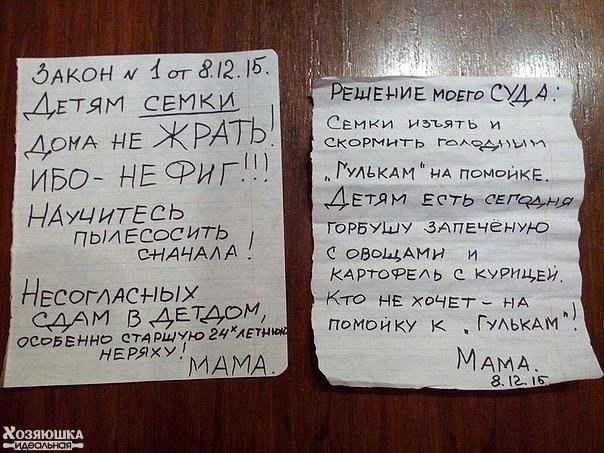 ЗАКОН N 1 от 8.12.15.
ДЕТЯМ СЕМКИ
ДОМА НЕ ЖРАТЬ!
ИБО - НЕ ФИГ!!!
НАУЧИТЕСЬ
ПЫЛЕСОСИТЬ
СНАЧАЛА!
НЕСОГЛАСНЫХ
СДАМ В ДЕТДОМ,
ОСОБЕННО СТАРШУЮ 24х ЛЕТНЮЮ
НЕРЯХУ!
МАМА.
РЕШЕНИЕ МОЕГО СУДА:
СЕМКИ ИЗЪЯТЬ И
СКОРМИТЬ ГОЛОДНЫМ
„ГУЛЬКАМ" НА ПОМОЙКЕ.
ДЕТЯМ ЕСТЬ СЕГОДНЯ
ГОРБУШУ ЗАПЕЧЁНУЮ
С ОВОЩАМИ И
КАРТОФЕЛЬ С КУРИЦЕЙ.
КТО НЕ ХОЧЕТ - НА
ПОМОЙКУ К „ГУЛЬКАМ"!
МАМА.
8.12.15.
ХОЗЯЮШКА
ИДЕАЛЬНАЯ